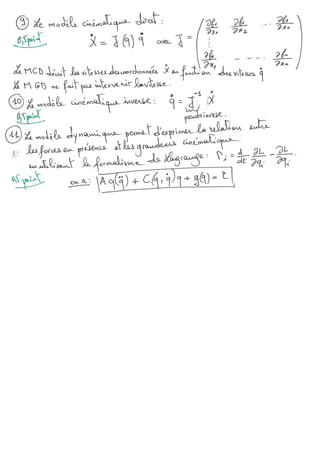 ⑨ Le modèle cinématique direct :
0,5 point Ẋ = J(q) q̇ avec J = ( ∂f₁/∂x₁ ∂f₁/∂x₂ ... ∂f₁/∂xₙ
⋮
∂fₙ/∂x₁ - - - - ∂fₙ/∂xₙ )
Le MCD décrit les vitesses des coordonnées Ẋ en fonction des vitesses q̇
Le M GD ne fait pas intervenir la vitesse.
⑩ Le modèle cinématique inverse : q̇ = J⁻¹ Ẋ
0,5 point pseudo inverse.
⑪ Le modèle dynamique permet d'exprimer la relation entre
les forces en présence et les grandeurs cinématiques
en utilisant le formalisme de Lagrange : Γᵢ = d/dt ∂L/∂q̇ᵢ - ∂L/∂qᵢ .
0,5 point on a : A q(q̈) + C(q, q̇) q + g(q) = τ